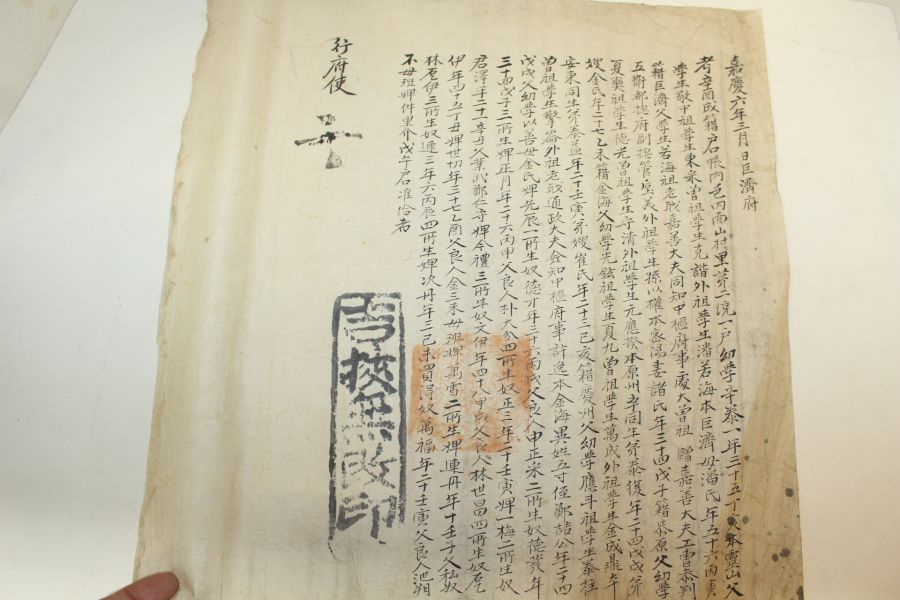 嘉慶六年三月 日巨濟府
考辛酉成籍戶口帳內邑內南山村里第二統一戶幼學辛泰一年三十五丁亥本靈山父
學生敬中祖學生東采曾祖學生克諧外祖學生潘若海本巨濟母潘氏年五十六丙寅
籍巨濟父學生若海祖老職嘉善大夫同知中樞府事慶大曾祖 贈嘉善大夫工曹參判
五衛都摠府副摠管 美外祖學生孫以權本密陽妻諸氏年三十四戊子籍柒原父幼學
夏奭祖學生德光曾祖學生守清外祖學生元應 本原州同生弟泰復年二十四戊戌弟
嫂金氏年二十七乙未籍金海父幼學光鉉祖學生夏九曾祖學生萬成外祖學生金成鼎本
安東同生弟泰益年二十壬寅弟嫂崔氏年二十三己亥籍慶州父幼學應斗祖學生泰柱
曾祖學生擎崙外祖老職通政大夫僉知中樞府事許逸本金海異姓五寸侄鄭喆公年二十四
戊戌父幼學以善母金氏婢先辰一所生奴德才年三十六丙戌父良人申正宋二所生奴德發年
三十四戊子三所生婢正月年二十六丙申父良人朴大分四所生奴正三年二十壬寅婢一梅二所生奴
君澤年二十一辛丑父業武鄭仁守婢今禮三所生奴文伊年四十八甲戌父良人林世昌四所生奴
伊年四十五丁丑婢世切年三十七乙酉父良人金三采母班婢萬雪二所生婢連丹年十壬子父私奴
林 伊三所生奴連三年六丙辰四所生婢次丹年三己未買得奴萬福年二十壬寅父良人池
不母班婢件里介戊午戶口准給者
行府使